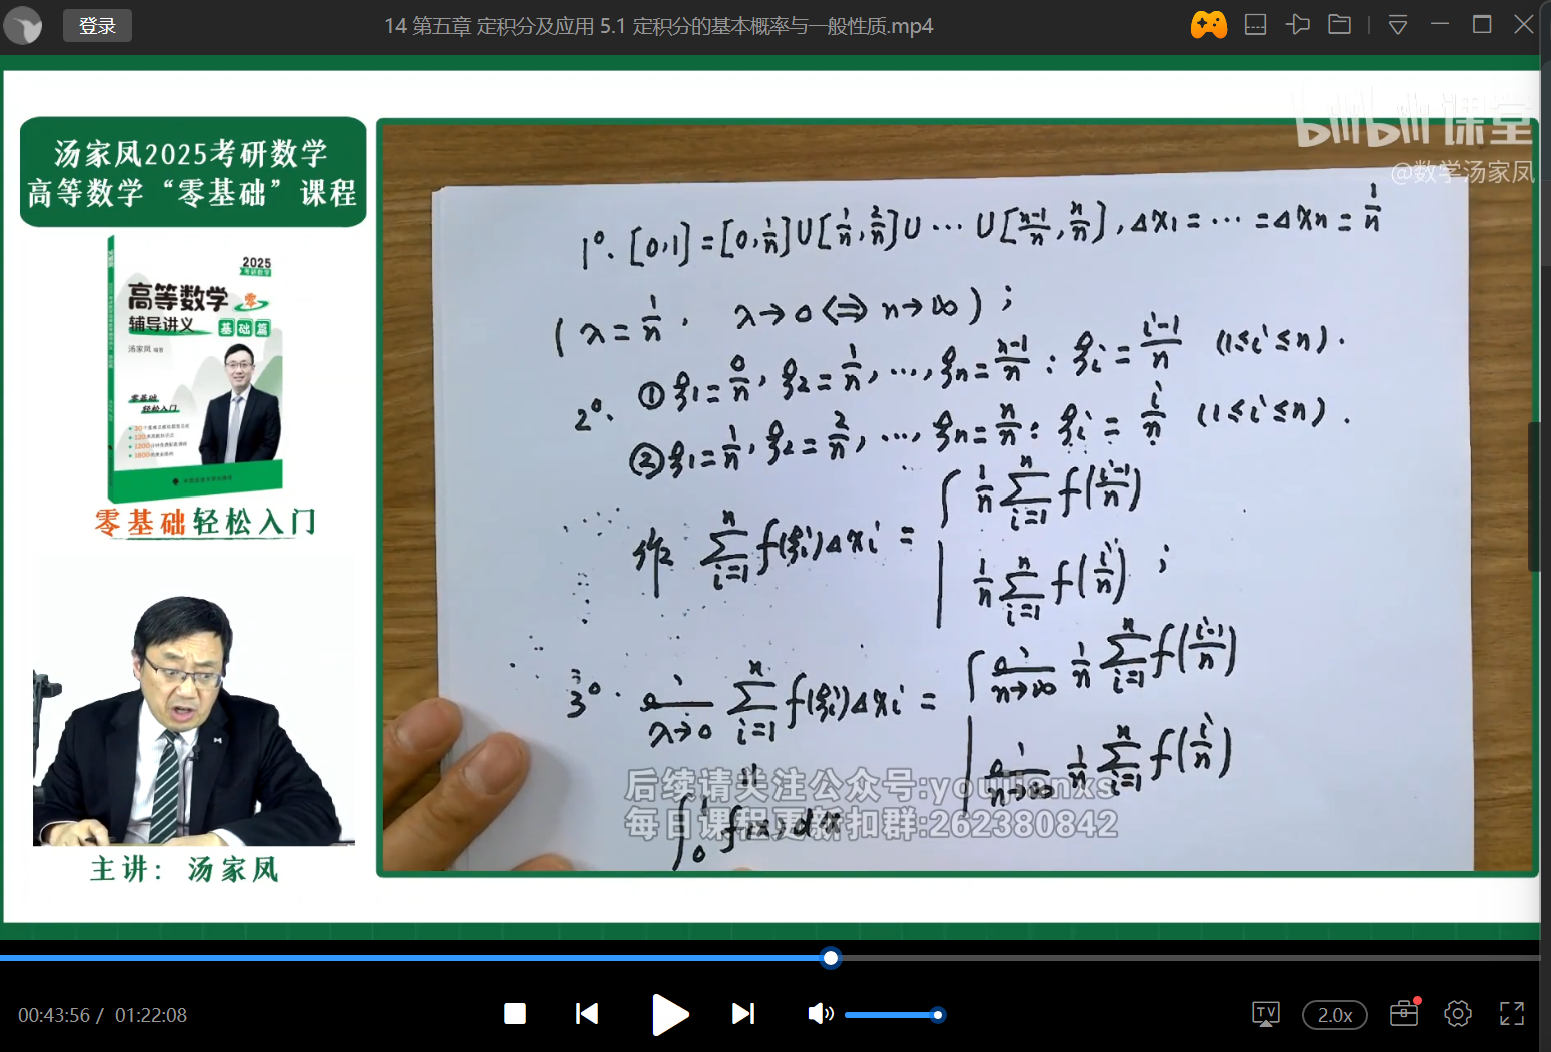 登录
14 第五章 定积分及应用 5.1 定积分的基本概率与一般性质.mp4
汤家凤2025考研数学
高等数学“零基础”课程
2025
考研数学
高等数学 零
辅导讲义 基础篇
汤家凤 编著
零基础
轻松入门
零基础轻松入门
主讲：汤家凤
bilibili 课堂
@数学汤家凤
1°. [0,1]=[0,1/n]∪[1/n,2/n]∪…∪[n-1/n,n/n], Δx1=…=Δxn=1/n
(λ=1/n, λ→0⇔n→∞);
2°. ①ξ1=0/n, ξ2=1/n,…,ξn=n-1/n: ξi=i-1/n (1≤i≤n).
②ξ1=1/n, ξ2=2/n,…,ξn=n/n: ξi=i/n (1≤i≤n).
作 Σ_{i=1}^{n} f(ξi)Δxi = { 1/n Σ_{i=1}^{n} f(i-1/n)
1/n Σ_{i=1}^{n} f(i/n) ;
3°. lim_{λ→0} Σ_{i=1}^{n} f(ξi)Δxi = { lim_{n→∞} 1/n Σ_{i=1}^{n} f(i-1/n)
lim_{n→∞} 1/n Σ_{i=1}^{n} f(i/n)
=
∫_0^1 f(x)dx
后续请关注公众号:youjianxs
每日课程更新扣群:262380842
00:43:56 / 01:22:08
TV
2.0x